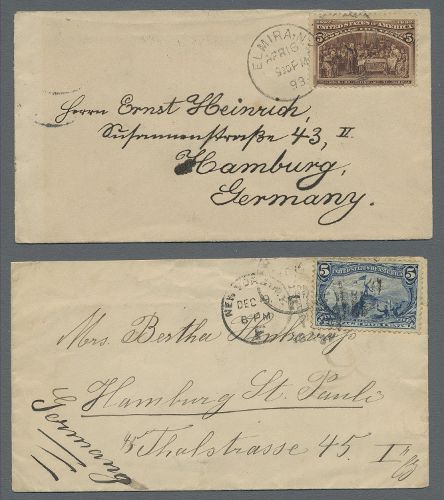 ELMIRA N.Y.
APR 16
930PM
93
5 UNITED STATES OF AMERICA 5
Herrn Ernst Heinrich,
Susannenstraße 43, II.
Hamburg,
Germany.
NEW YORK
DEC
6 PM
5 UNITED STATES OF AMERICA 5
Mrs. Bertha
Hamburg St. Pauli
Thalstrasse 45. I
Germany